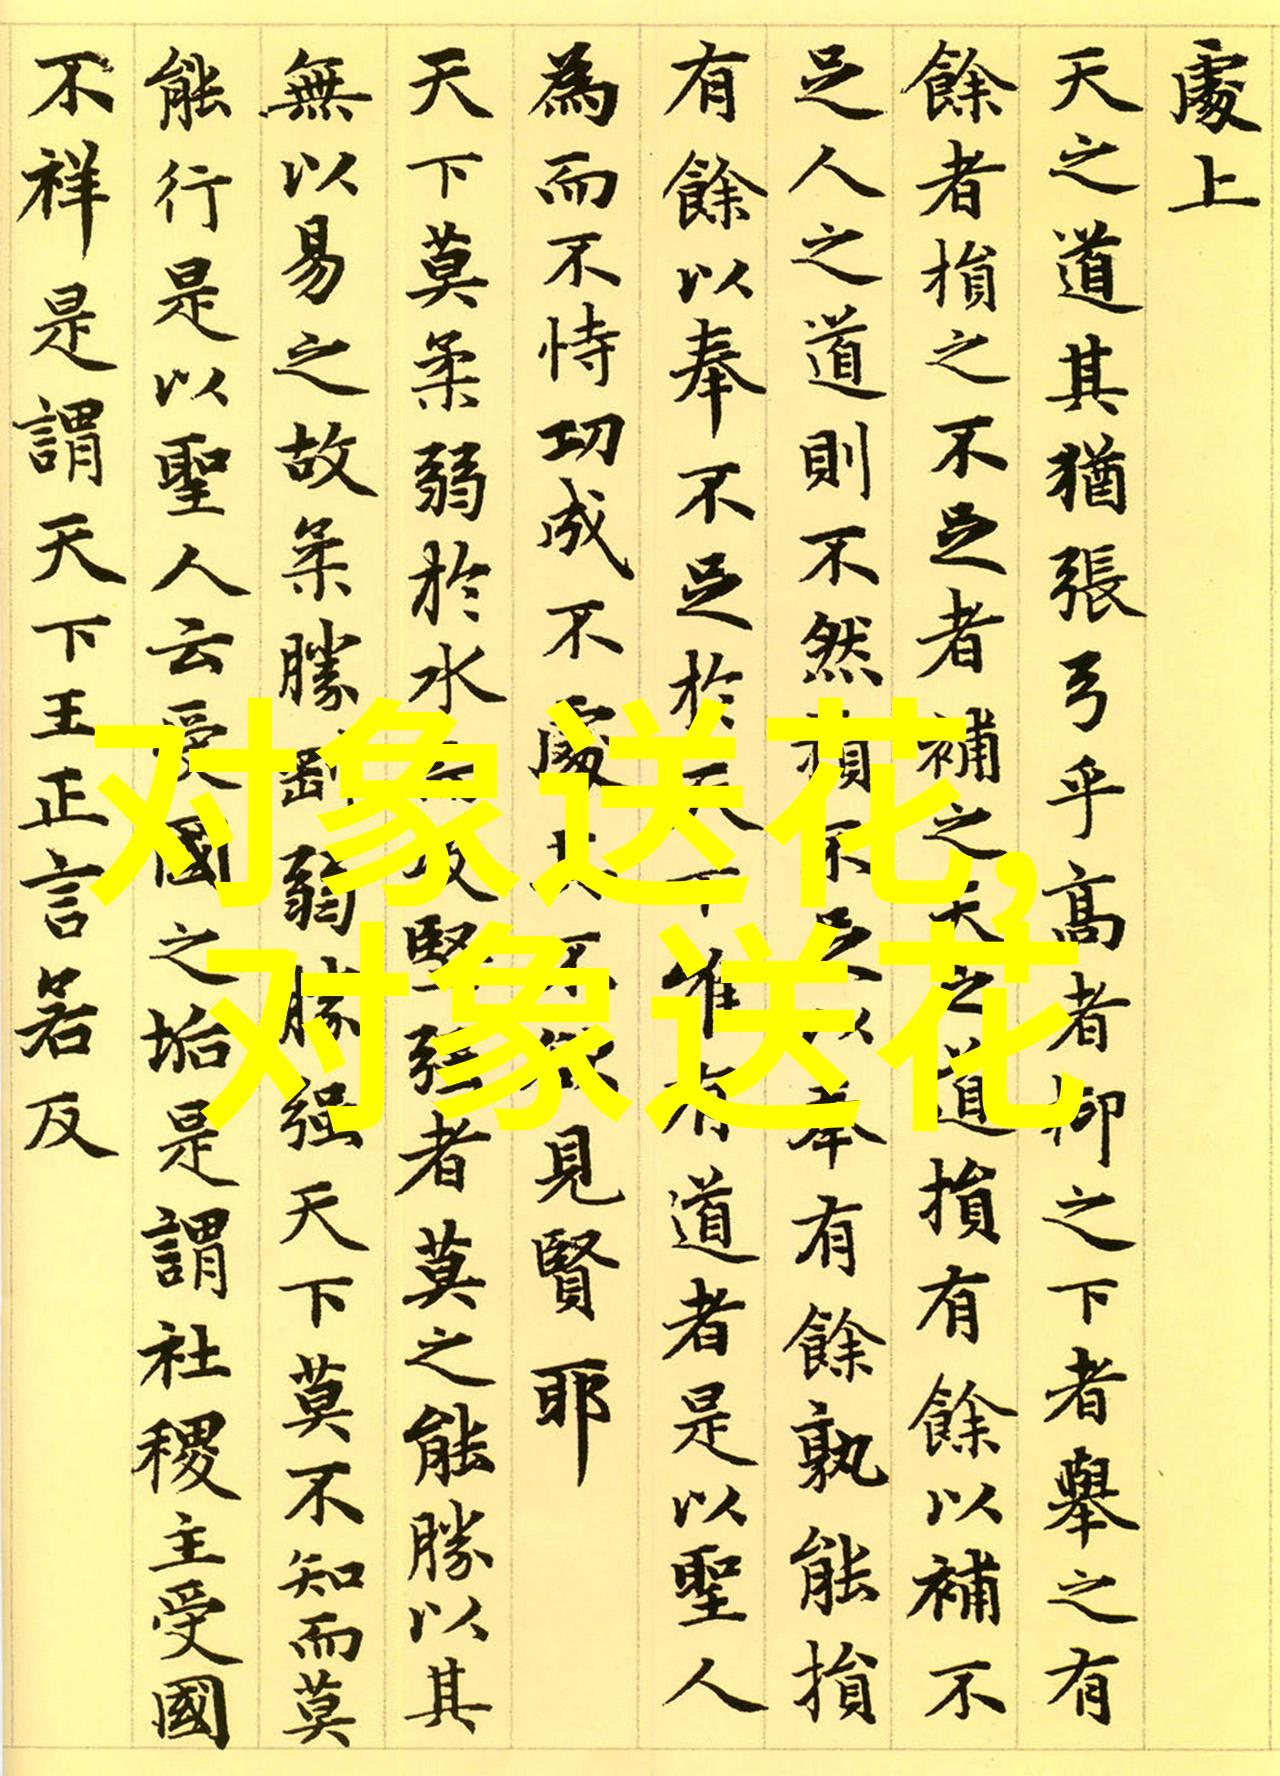 處上
天之道其猶張弓乎高者抑之下者舉之有
餘者損之不足者補之天之道損有餘以補不
足人之道則不然損不足以奉有餘孰能損
有餘以奉不足於天下唯有道者是以聖人
為而不恃功成不處其不欲見賢耶
天下莫柔弱於水 攻堅强者莫之能勝以其
無以易之故柔勝剛弱勝强天下莫不知而莫
能行是以聖人云受國之垢是謂社稷主受國
不祥是謂天下王正言若反
对象送花,
对象送花